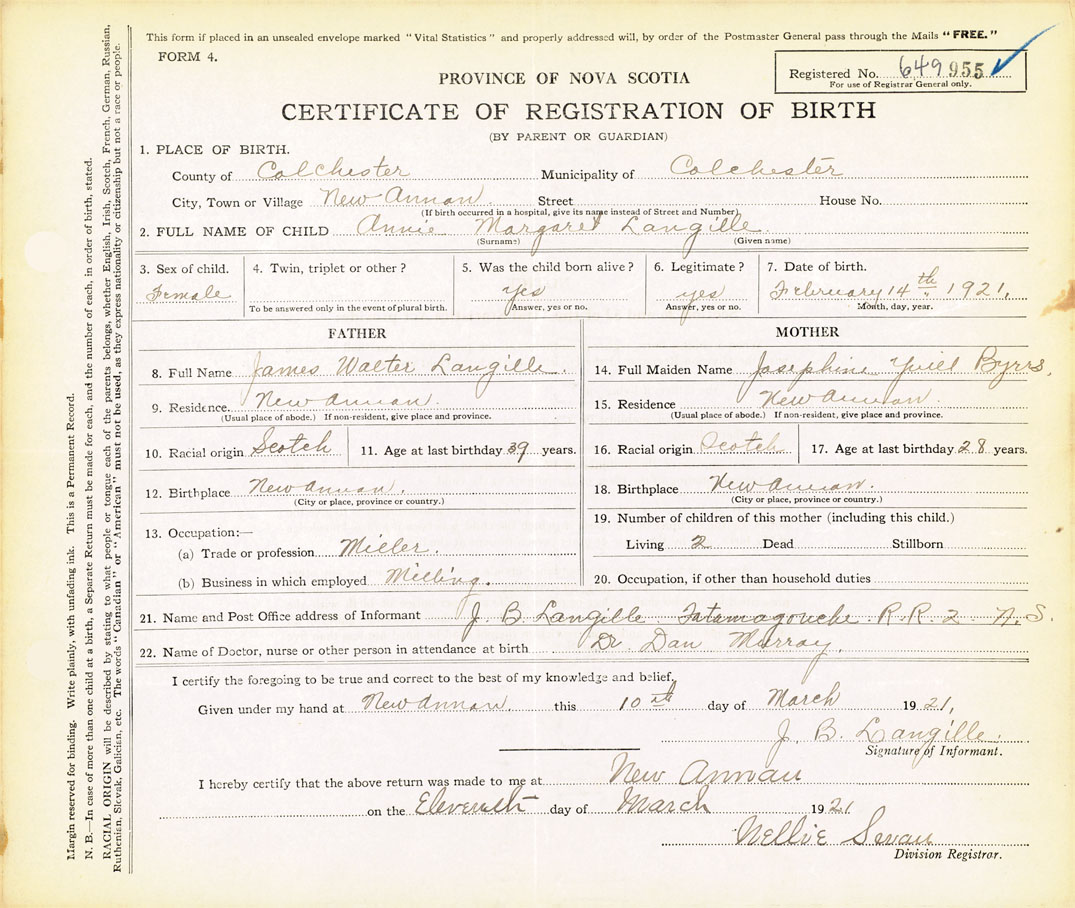 This form if placed in an unsealed envelope marked "Vital Statistics" and properly addressed will, by order of the Postmaster General pass through the Mails "FREE."
FORM 4.
Registered No. 649 955
For use of Registrar General only.
PROVINCE OF NOVA SCOTIA
CERTIFICATE OF REGISTRATION OF BIRTH
(BY PARENT OR GUARDIAN)
1. PLACE OF BIRTH.
County of Colchester Municipality of Colchester
City, Town or Village New Annan Street House No.
(If birth occurred in a hospital, give its name instead of Street and Number)
2. FULL NAME OF CHILD Annie Margaret Langille
(Surname) (Given name)
3. Sex of child. 4. Twin, triplet or other? 5. Was the child born alive? 6. Legitimate? 7. Date of birth.
Female yes yes February 14th 1921.
To be answered only in the event of plural birth. Answer, yes or no. Answer, yes or no. Month, day, year.
FATHER
8. Full Name James Walter Langille.
9. Residence. New Annan.
(Usual place of abode.) If non-resident, give place and province.
10. Racial origin Scotch 11. Age at last birthday 39 years.
12. Birthplace New Annan.
(City or place, province or country.)
13. Occupation:—
(a) Trade or profession Miller.
(b) Business in which employed Milling.
MOTHER
14. Full Maiden Name Josephine Byrrs.
15. Residence New Annan.
(Usual place of abode.) If non-resident, give place and province.
16. Racial origin Scotch 17. Age at last birthday 28 years.
18. Birthplace New Annan.
(City or place, province or country.)
19. Number of children of this mother (including this child.)
Living 2 Dead Stillborn
20. Occupation, if other than household duties
21. Name and Post Office address of Informant J. B Langille Tatamagouche R.R. 2 N.S.
22. Name of Doctor, nurse or other person in attendance at birth Dr. Dan Murray.
I certify the foregoing to be true and correct to the best of my knowledge and belief.
Given under my hand at New Annan. this 10th day of March 1921,
J. B. Langille.
Signature of Informant.
I hereby certify that the above return was made to me at New Annan
on the Eleventh day of March 1921
Nellie Swan
Division Registrar.
Margin reserved for binding. Write plainly, with unfading ink. This is a Permanent Record.
N. B.—In case of more than one child at a birth, a Separate Return must be made for each, and the number of each, in order of birth, stated.
RACIAL ORIGIN will be described by stating to what people or tongue each of the parents belongs, whether English, Irish, Scotch, French, German, Russian,
Ruthenian, Slovak, Galician, etc. The words "Canadian" or "American" must not be used, as they express nationality or citizenship but not a race or people.